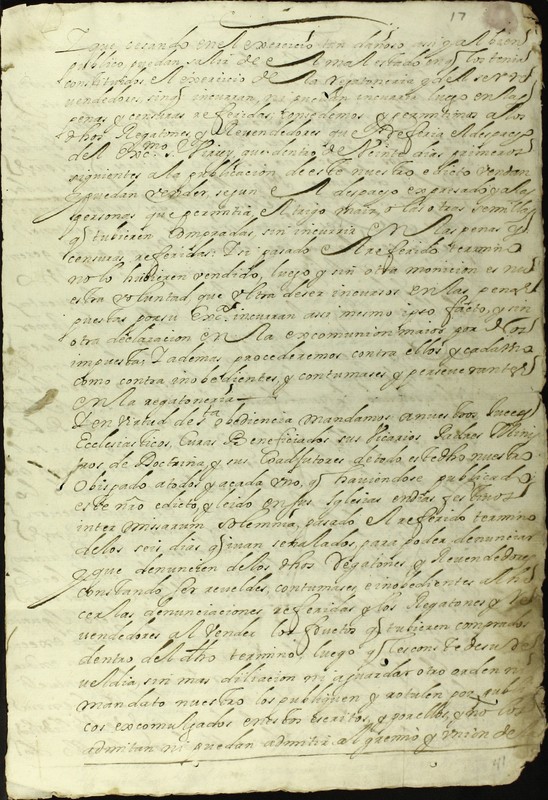 17
Y que cesando en el exercicio tan dañoso assi al bien
publico puedan salir de el mal estado en q los tenia
constituidos el exercicio de la regatoneria y de ser re
vendedores, sin q incurran, ni puedan incurrir luego en las
penas y censuras referidas; concedemos y permitimos a los
dhos Regatones, y Revendedores que
del Exc.mo S. Virrey, que dentro de Veinte dias primeros
siguientes a la publicacion de este nuestro edicto vendan
y puedan vender segun el despacho expresado y a las
personas que permitia, el trigo maiz, o las otras semillas
q tubieren compradas, sin incurrir en las penas y
censuras referidas; Y si pasado el referido termino
no lo hubieren vendido, luego y sin otra monicion es nu
estra voluntad, que ultra de ser incursos en las penas
puestas por su Exc.a incurran asi mismo ipso facto, y sin
otra declaracion en la excomunion maior por Nos
impuesta; Y ademas procederemos contra ellos y cada uno
como contra inobedientes, y contumases y perseverantes
en la regatoneria
Y en virtud de s.ta obediencia mandamos a nuestros Jueces
Ecclesiasticos, Curas Beneficiados sus Vicarios Padres Mini
stros de Doctrina, y sus Coadjutores de todo este dho nuestro
Obispado a todos y a cada uno, q haviendose publicado
este nro edicto, y leido en sus Iglesias en dias festivos
inter missarum solemnia, pasado el referido termino
de los seis dias, q ivan señalados para poder denunciar
y que denuncien de los dhos Regatones, y Revendedores
constando ser reveldes, contumases, e inobedientes al ha
cer las denunciaciones referidas y los Regatones y Re
vendedores al vender los q tubieren comprados
dentro del dho termino, luego q les conste de su re
veldia, sin mas dilacion ni aguardar otro orden ni
mandato nuestro los publiquen y rotulen por publi
cos excomulgados en estos escritos, y por ellos, y no los
admitan ni puedan admitir al gremio y union de